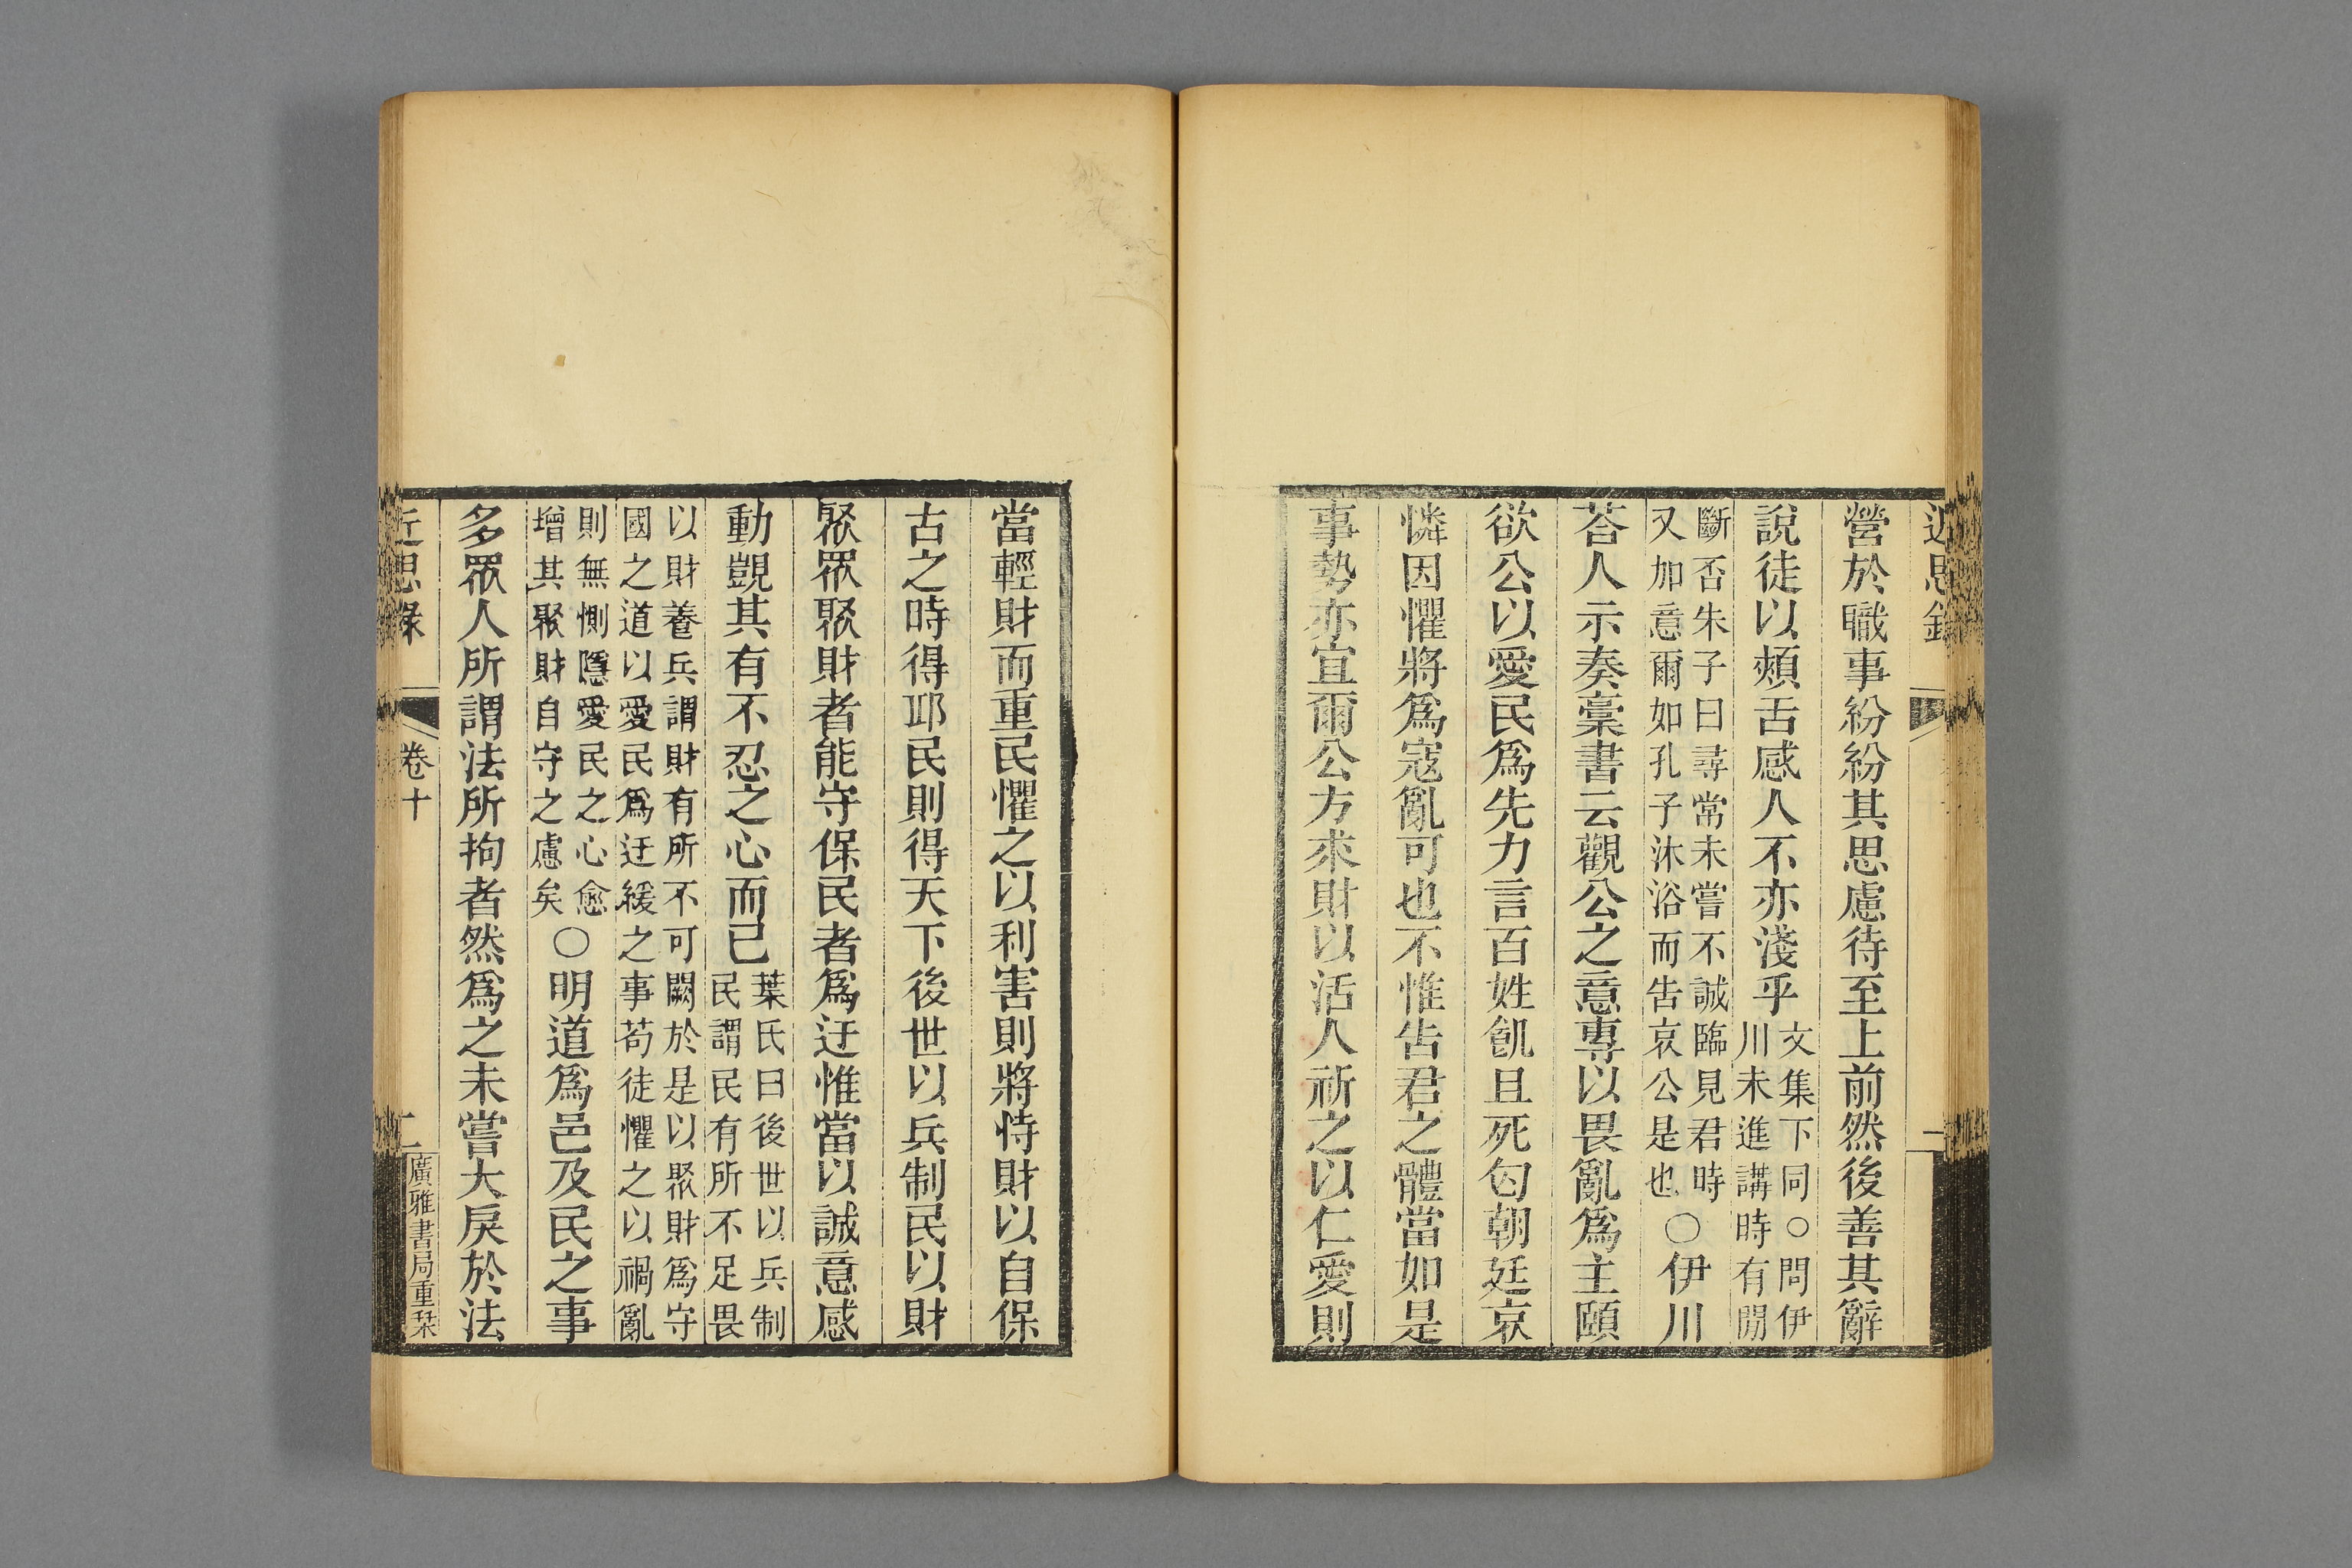 近思錄 一
營於職事紛紛其思慮待至上前然後善其辭
說徒以頰舌感人不亦淺乎文集下同○問伊
川未進講時有間
斷否朱子曰尋常未嘗不誠臨見君時
又加意爾如孔子沐浴而告哀公是也○伊川
荅人示奏稾書云觀公之意專以畏亂爲主頤
欲公以愛民爲先力言百姓飢且死匄朝廷哀
憐因懼將爲寇亂可也不惟告君之體當如是
事勢亦宜爾公方求財以活人祈之以仁愛則
當輕財而重民懼之以利害則將恃財以自保
古之時得邱民則得天下後世以兵制民以財
聚眾聚財者能守保民者爲迂惟當以誠意感
動覬其有不忍之心而已葉氏曰後世以兵制
民謂民有所不足畏
以財養兵謂財有所不可闕於是以聚財爲守
國之道以愛民爲迂緩之事苟徒懼之以禍亂
則無惻隱愛民之心愈
增其聚財自守之慮矣○明道爲邑及民之事
多眾人所謂法所拘者然爲之未嘗大戾於法
近思錄 卷十 二 廣雅書局重栞